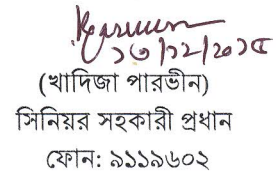 ১৩/১২/২০১৫
(খাদিজা পারভীন)
সিনিয়র সহকারী প্রধান
ফোন: ৯১১৯৬০২